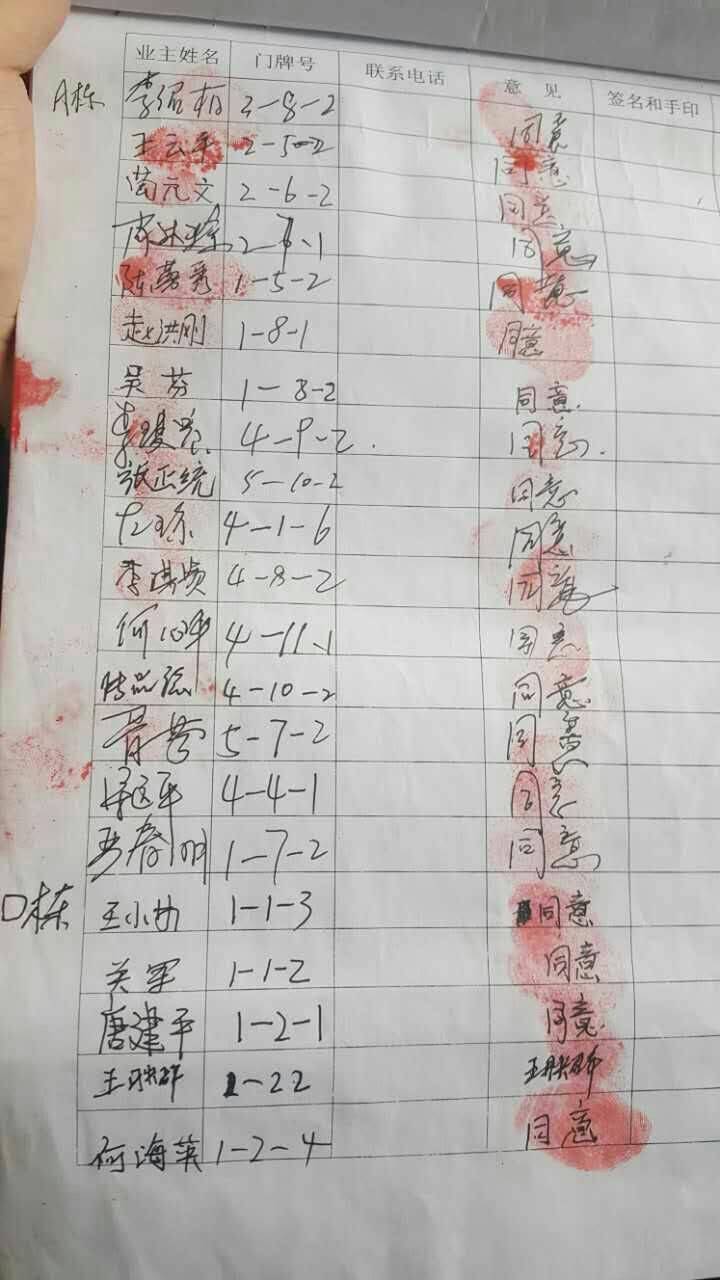 业主姓名 门牌号 联系电话 意见 签名和手印
A栋 李绍相 2-8-2 同意
王云平 2-5-2 同意
文 2-6-2 同意
2-7-1 同意
陈 秀 1-5-2 同意
赵洪刚 1-8-1 同意
吴芬 1-8-2 同意
李 4-9-2 同意
张正统 5-10-2 同意
4-1-6 同意
李 贵 4-8-2 同意
何 4-11-1 同意
4-10-2 同意
5-7-2 同意
平 4-4-1 同意
春明 1-7-2 同意
D栋 王小 1-1-3 同意
关军 1-1-2 同意
唐建平 1-2-1 同意
王 群 1-22 王 群
何海英 1-2-4 同意